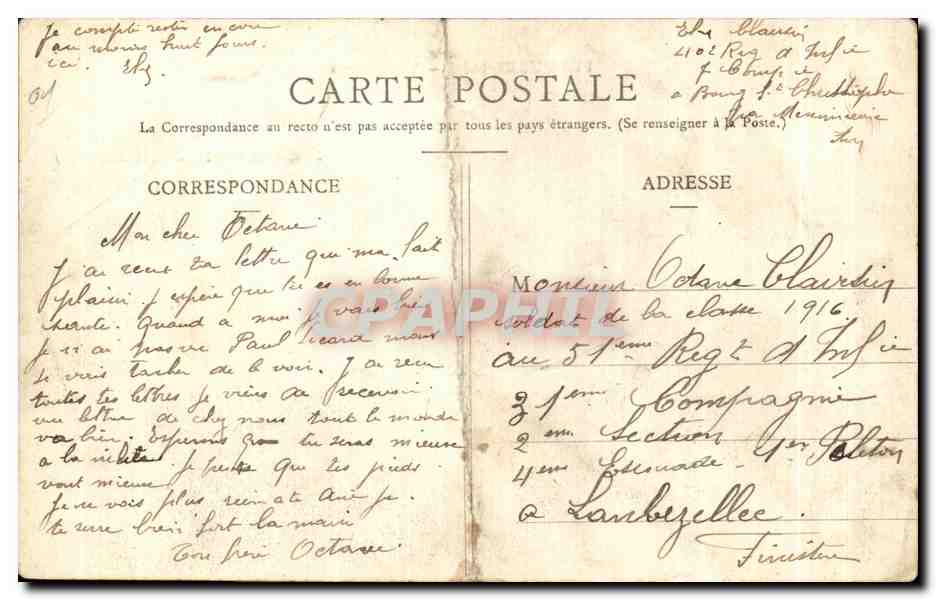 Je compte rester encore
au moins huit jours.
ici.
402 Reg d Infie
7 Compie
a Bourg St Christophe
via Meximieux
Ain
CARTE POSTALE
La Correspondance au recto n'est pas acceptée par tous les pays étrangers. (Se renseigner à la Poste.)
CORRESPONDANCE
ADRESSE
Mon cher Octave
J'ai recut ta lettre qui ma fait
plaisir. J espère que tu es en bonne
sante. Quand a moi je vais bien
Je n ai pas vu Paul Picard mais
je vais tacher de le voir. J ai recu
toutes tes lettres je viens de recevoir
une lettre de chez nous tout le monde
va bien. Esperons que tu seras mieux
a la visite. Je pense que tes pieds
vont mieux
Je ne vois plus rien a te dire je
te serre bien fort la main
Ton frère Octave.
Monsieur Octave Clairdin
soldat de la classe 1916
au 51eme Regt d Infie
31eme Compagnie
2eme Section
4eme Escouade 1er Peloton
a Lambezellec.
Finistère
CPAPHIL